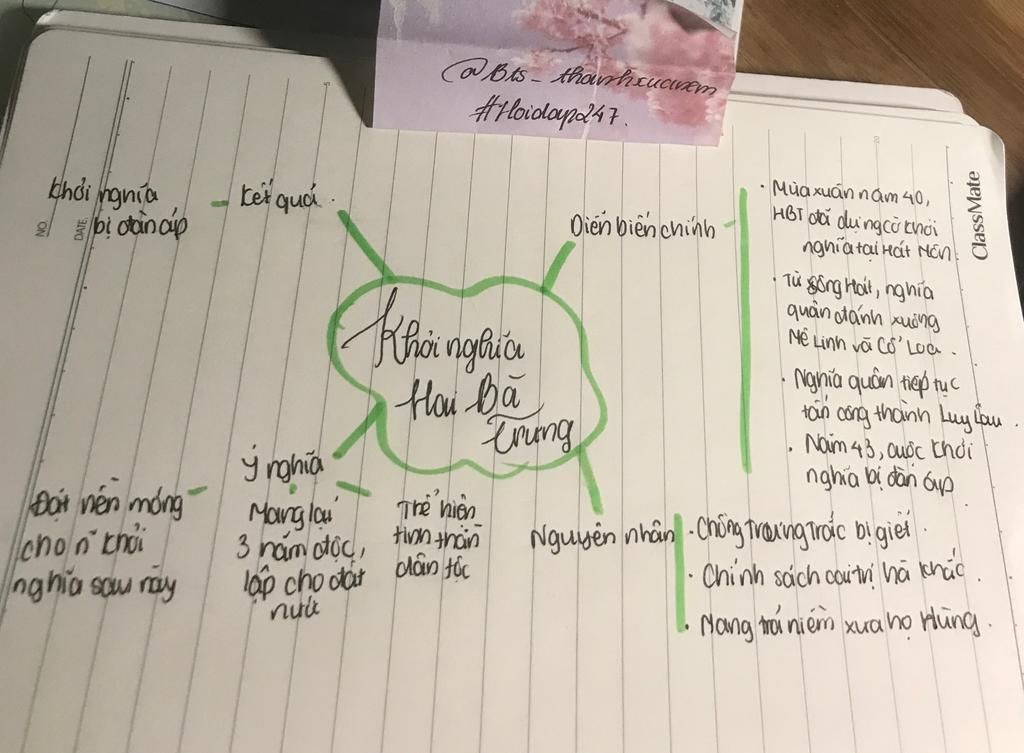 @Bts_thanhxuanem
#Hoidap247.
Khởi nghĩa
Hai Bà
Trưng
Kết quả
Khởi nghĩa
bị đàn áp
Diễn biến chính
· Mùa xuân năm 40,
HBT đã dựng cờ khởi
nghĩa tại Hát Môn.
· Từ sông Hát, nghĩa
quân đánh xuống
Mê Linh và Cổ Loa.
· Nghĩa quân tiếp tục
tấn công thành Luy Lâu.
· Năm 43, cuộc khởi
nghĩa bị đàn áp
Ý nghĩa
Đặt nền móng
cho n` khởi
nghĩa sau này
Mang lại
3 năm độc,
lập cho đất
nước
Thể hiện
tinh thần
dân tộc
Nguyên nhân
· Chồng Trưng Trắc bị giết.
· Chính sách cai trị hà khắc.
· Mang trái niềm xưa họ Hùng.
NO.
DATE
ClassMate
5
20